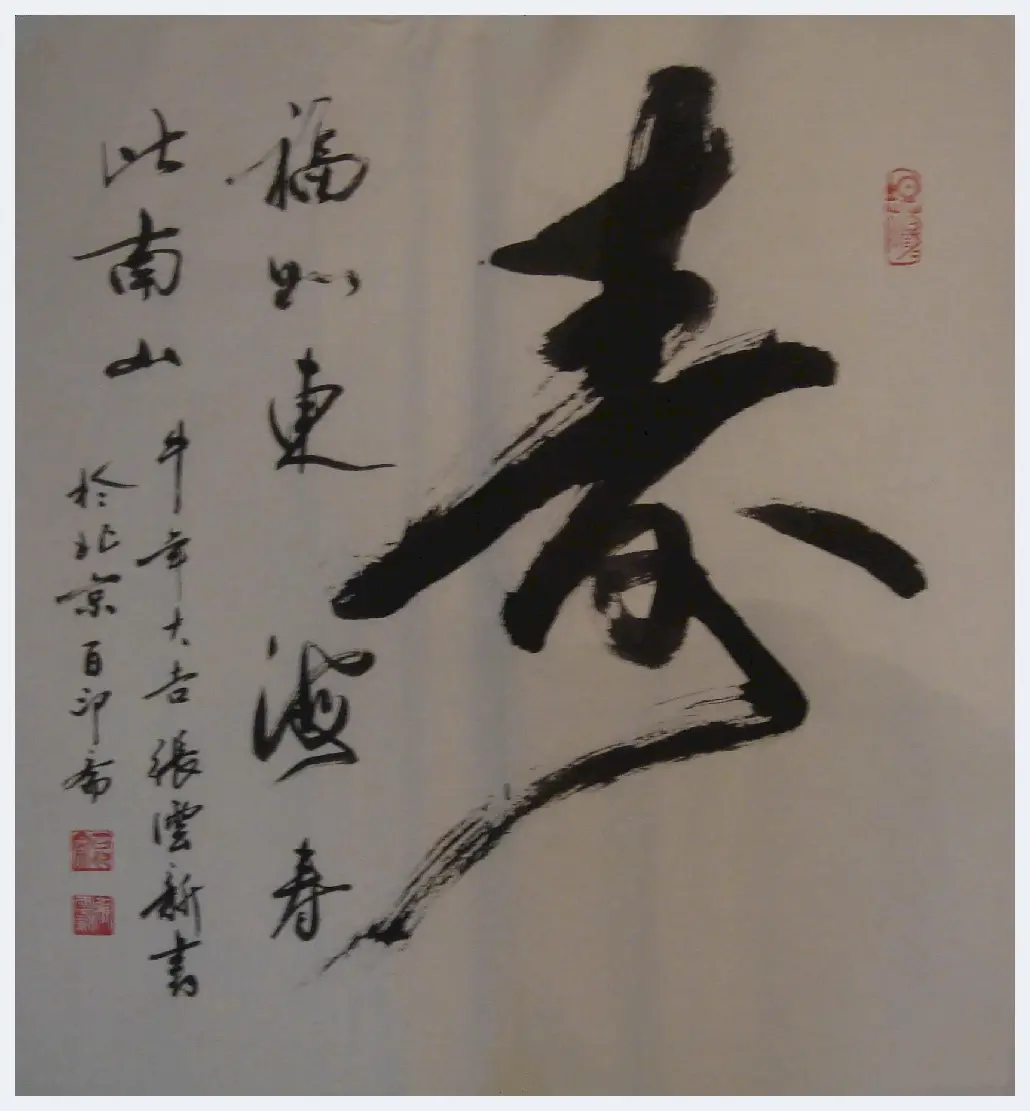 寿
福如東海寿
比南山
牛年大吉張雲新書
於北京百印斋